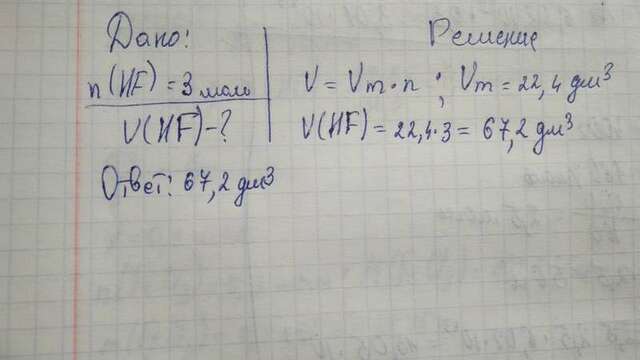 Дано:
n(HF) = 3 моль
V(HF) - ?
Решение
V = Vm · n ; Vm = 22,4 дм³
V(HF) = 22,4 · 3 = 67,2 дм³
Ответ: 67,2 дм³